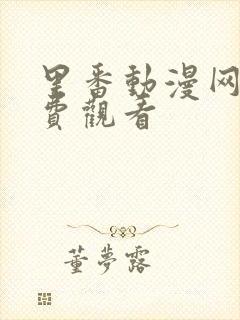 里番動漫网
費觀看
董夢露